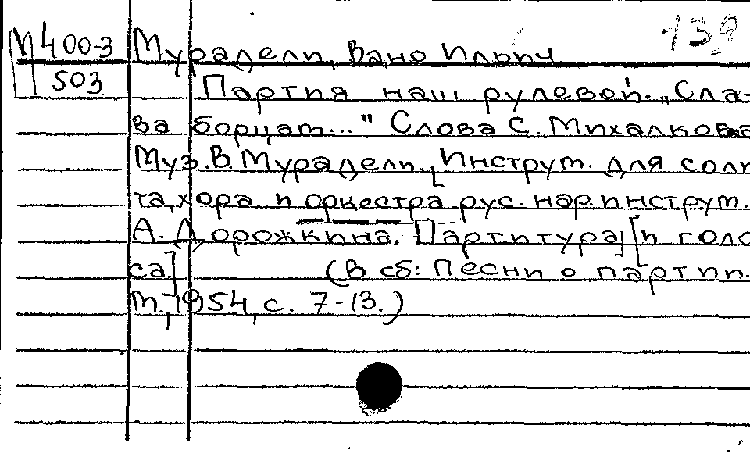 М 400-3 Мурадели, Вано Ильич 139
503 Партия наш рулевой. „Сла-
ва борцам..." Слова С. Михалкова
Муз. В. Мурадели. [Инструм. для солис-
та, хора и оркестра рус. нар. инструм.
А. Дорожкина. Партитура] [и голо
са] (В сб: Песни о партии.
М., 1954, с. 7-13.)